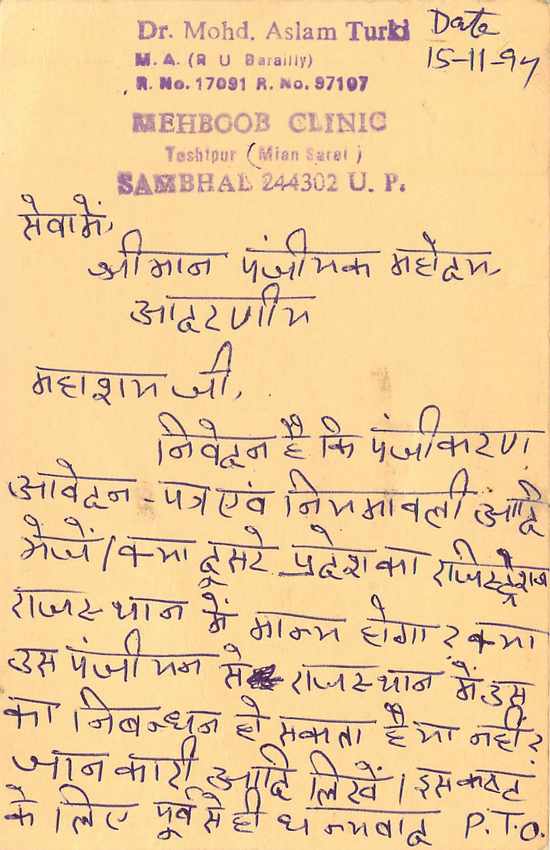 Dr. Mohd. Aslam Turki
Date
M. A. (R U Barailly)
15-11-97
R. No. 17091 R. No. 97107
MEHBOOB CLINIC
Teshtpur (Mian Sarei)
SAMBHAL 244302 U. P.
सेवामें,
श्रीमान पंजीयक महोदय,
आदरणीय
महाशय जी,
निवेदन है कि पंजीकरण
आवेदन-पत्र एवं नियमावली आदि
भेजें। क्या दूसरे प्रदेश का राजिस्ट्रेशन
राजस्थान में मान्य होगा? क्या
उस पंजीयन से राजस्थान में उस
का निबन्धन हो सकता है या नहीं?
जानकारी आदि लिखें। इस कष्ट
के लिए पूर्व से ही धन्यवाद P.T.O.